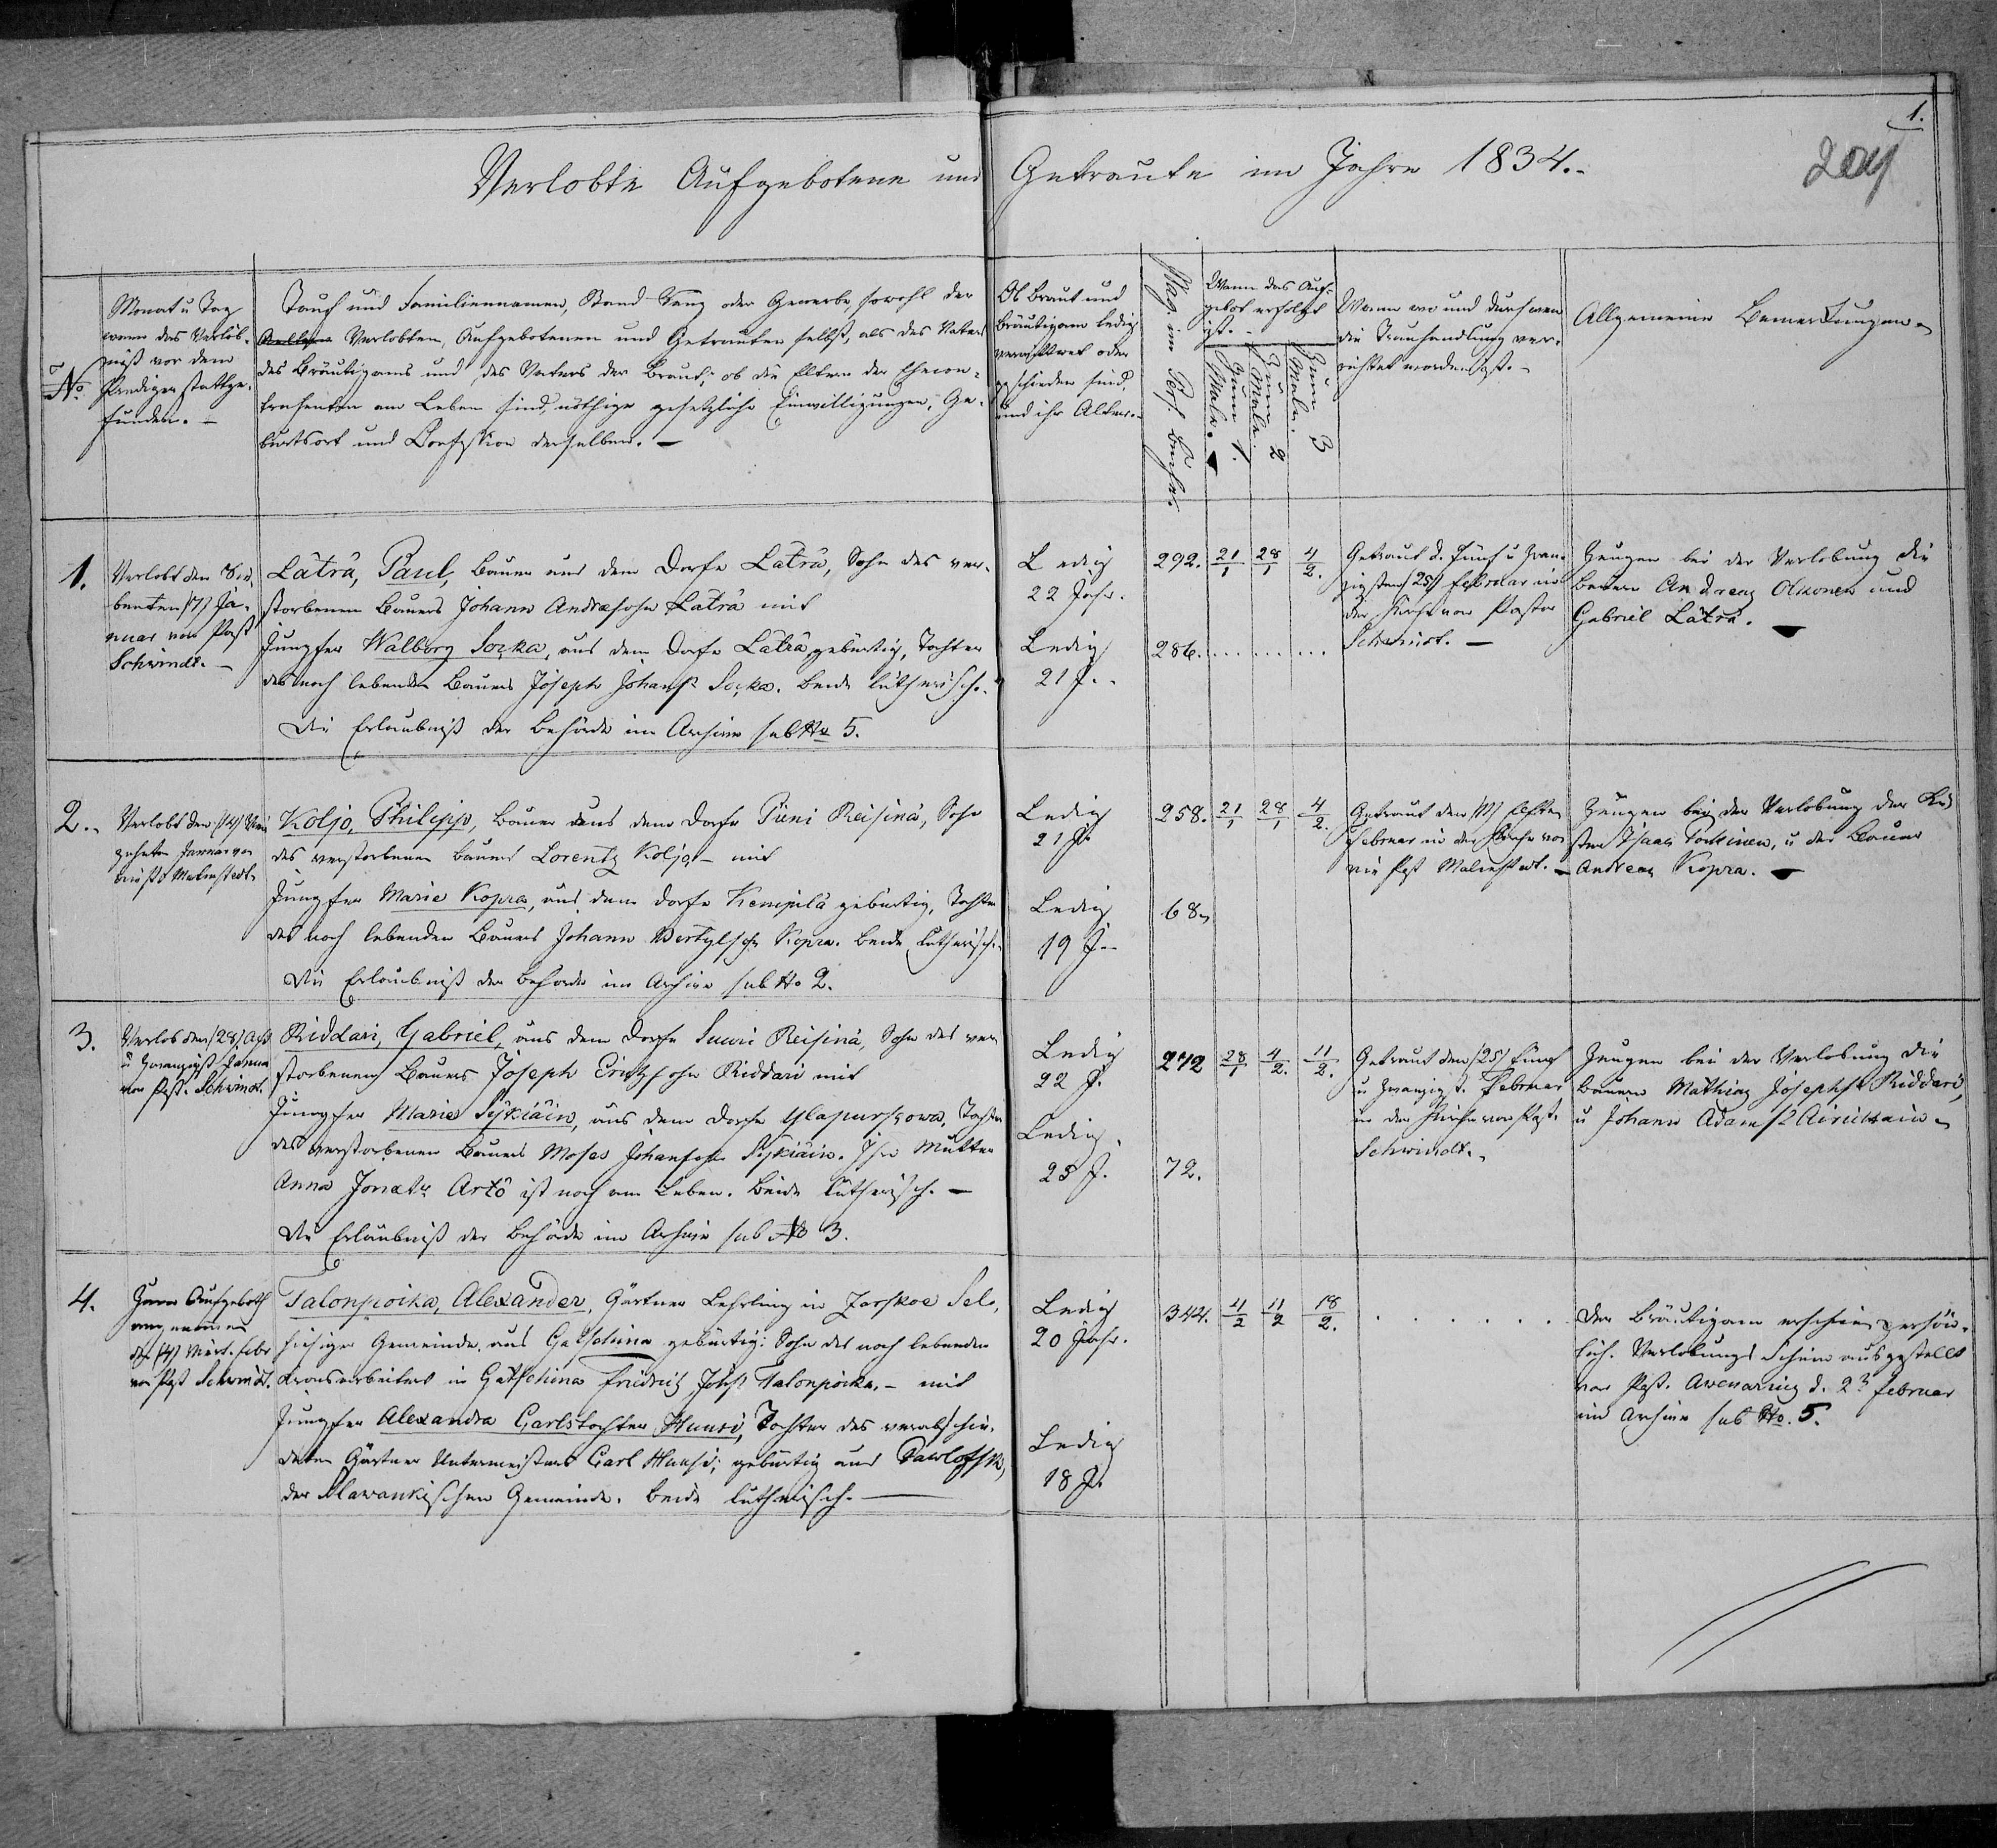 1.
Verlobte Aufgebotene und Getraute im Jahre 1834.
No.
Monat u Tag
wann das Verlöb-
niß vor dem
Prediger stattge-
funden. –
Tauf und Familiennamen, Stand Rang oder Gewerbe, sowohl der
Verlobten, Aufgebotenen und Getrauten selbst, als des Vaters
des Bräutigams und des Vaters der Braut; ob die Eltern der Ehecon-
trahenten am Leben sind, nöthige gesetzliche Einwilligungen, Ge-
burtsort und Confession derselben. –
Ob Braut und
Bräutigam ledig
verwittwet oder
geschieden sind,
und ihr Alter.
Pag. im Pers. Buche.
Wann das Auf-
gebot erfolgt
ist. –
Zum 1. Male.
Zum 2 Male.
Zum 3 Male.
Wann wo und durch wen
die Trauhandlung ver-
richtet worden ist. –
Allgemeine Bemerkungen
1.
Verlobt den Sie-
benten /7/ Ja-
nuar von Past
Schwindt. –
Läträ, Paul, Bauer aus dem Dorfe Läträ, Sohn des ver-
storbenen Bauers Johann Andrasohn Läträ mit
Jungfer Walborg Soçka, aus dem Dorfe Läträ gebürtig, Tochter
des noch lebenden Bauers Joseph Johanss Soçka. Beide lutherisch.
Die Erlaubniß der Behörde im Archive sub No 5.
Ledig
22 Jahr.
Ledig
21 J.
292. 21/1 28/1 4/2.
286.
Getraut d. Fünf u Zwan-
zigsten /25/ Februar in
der Kirche von Pastor
Schwindt. –
Zeugen bei der Verlobung die
Bauern Andreas Olkonen und
Gabriel Läträ. –
2.
Verlobt den /14/ Vier
zehnten Januar von
Malmstedt
Koljo, Philipp, Bauer aus dem Dorfe Pieni Reisinä, Sohn
des verstorbenen Bauers Lorentz Koljo – mit
Jungfer Marie Kopra, aus dem Dorfe Kempilä gebürtig, Tochter
des noch lebenden Bauers Johann Bertylsohn Kopra. Beide lutherisch.
Die Erlaubniß der Behörde im Archive sub No 2.
Ledig
21 J.
Ledig
19 J.
258. 21/1 28/1 4/2.
68
Getraut den /11/ Elften
Februar in der Kirche von
Past Malmstedt. –
Zeugen bei der Verlobung der Kü
ster Isaac Torkinen, u der Bauer
Andreas Kopra. –
3.
Verlob den /28/ Acht
u Zwanzigst. Janua
von Past. Schwindt.
Riddari, Gabriel, aus dem Dorfe Suuri Reisinä, Sohn des ver
storbenen Bauers Joseph Eritzsohn Riddari mit
Jungfer Maria Sykiäin, aus dem Dorfe Ylapurskowa, Tochter
des verstorbenen Bauers Moses Johansohn Sykiäin. Ihre Mutter
Anna Jonætr Artö ist noch am Leben. Beide lutherisch. –
Die Erlaubniß der Behörde im Archive sub No 3.
Ledig
22 J.
Ledig.
25 J.
272 28/1 4/2. 11/2.
72.
Getraut den /25/ Fünf
u Zwanzigst. Februar
in der Kirche von Past.
Schwindt.
Zeugen bei der Verlobung die
Bauern Mathias Josephss Riddari,
u Johann Adamss Airikain
4.
Zum Aufgeboth
angenommen
/4/ Viert. Febr
von Past Schwindt.
Talonpoika, Alexander, Gärtner Lehrling in Zarskoe Selo,
hiesiger Gemeinde, aus Gatschina gebürtig: Sohn des noch lebenden
Kronsarbeiters in Gatschina Friedrich Johss Talonpoika, – mit
Jungfer Alexandra Carlstochter Huusi, Tochter des verabschie-
deten Gärtner Untermeisters Carl Huusi; gebürtig aus Pawlofsk,
der Slawankischen Gemeinde. Beide lutherisch. –
Ledig
20 Jahr.
Ledig
18 J.
344. 4/2 11/2 18/2.
Der Bräutigam erschien persön-
lich. Verlobungs Schein ausgestellt
von Past. Avenarius d. 2n Februar
im Archive sub No. 5.